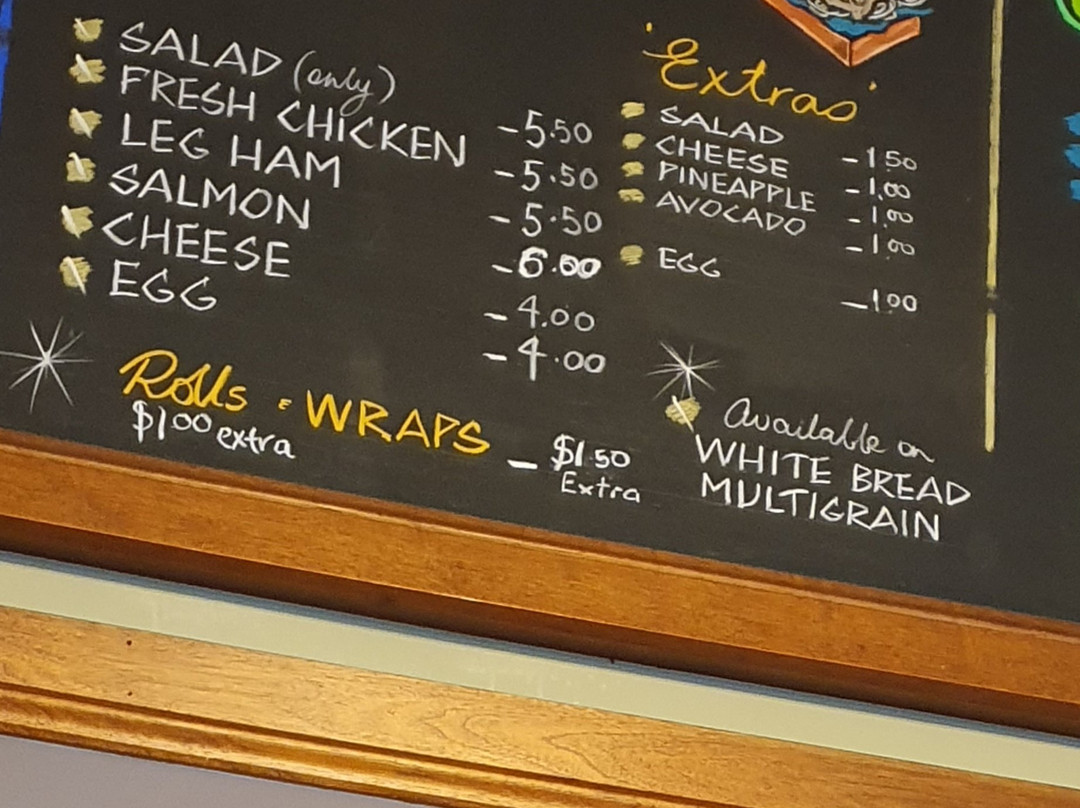 SALAD (only) - 5.50
FRESH CHICKEN - 5.50
LEG HAM - 5.50
SALMON - 6.00
CHEESE - 4.00
EGG - 4.00
Rolls & WRAPS
$1.00 extra - $1.50 Extra
'Extras'
SALAD - 1.50
CHEESE - 1.00
PINEAPPLE - 1.00
AVOCADO - 1.00
EGG - 1.00
Available on
WHITE BREAD
MULTIGRAIN